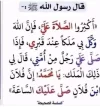 قال رسول الله ﷺ:
«أَكْثِرُوا الصَّلَاةَ عَلَيَّ، فَإِنَّ اللهَ
وَكَّلَ بِي مَلَكًا عِنْدَ قَبْرِي، فَإِذَا
صَلَّى عَلَيَّ رَجُلٌ مِنْ أُمَّتِي قَالَ لِي
ذَلِكَ الْمَلَكُ: يَا مُحَمَّدُ إِنَّ فُلَانَ
بْنَ فُلَانٍ صَلَّى عَلَيْكَ السَّاعَةَ»